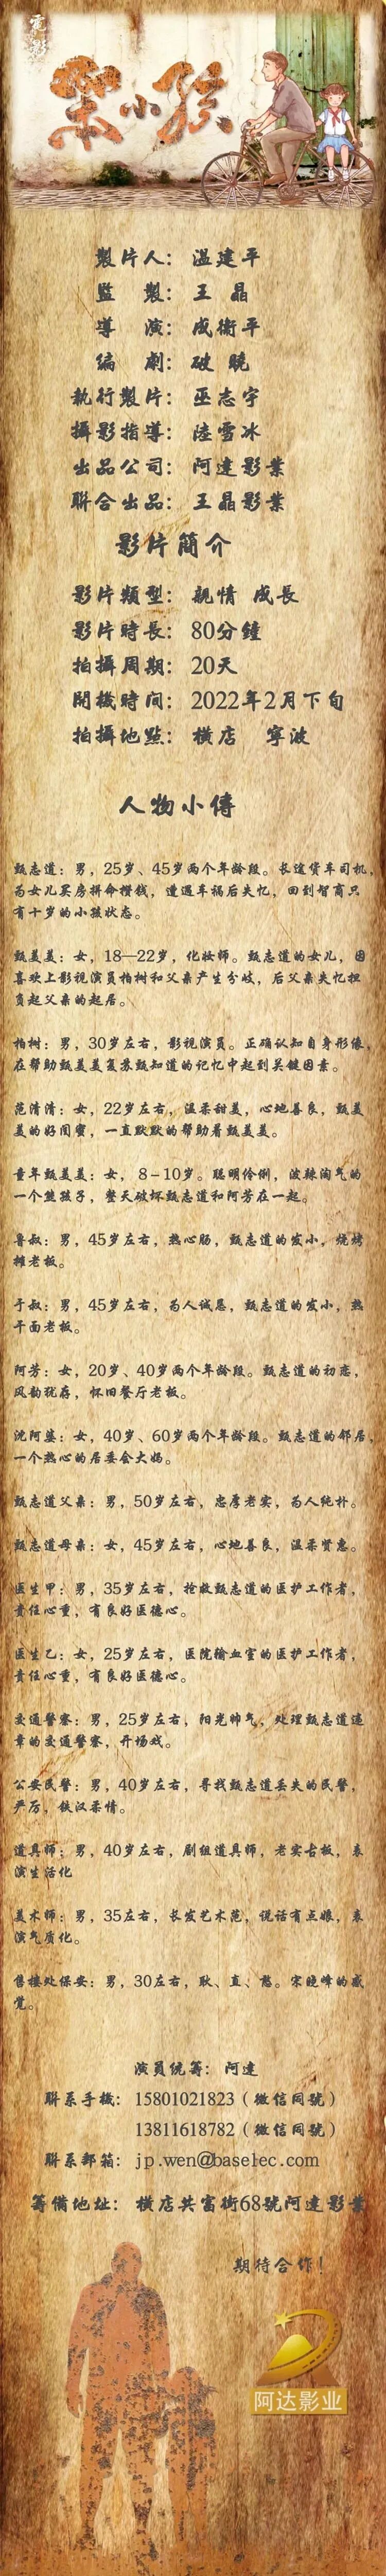 電影
笨小孩
製片人：溫建平
監 製：王 晶
導 演：成衛平
編 劇：破 曉
執行製片：巫志宇
攝影指導：陸雪冰
出品公司：阿達影業
聯合出品：王晶影業
影片簡介
影片類型：親情 成長
影片時長：80分鐘
拍攝周期：20天
開機時间：2022年2月下旬
拍攝地點：橫店 寧波
人物小傳
甄志道：男，25岁、45岁两个年龄段。长途货车司机，
为女儿买房拼命攒钱，遭遇车祸后失忆，回到智商只
有十岁的小孩状态。
甄美美：女，18—22岁，化妆师。甄志道的女儿，因
喜欢上影视演员柏树和父亲产生分歧，后父亲失忆担
负起父亲的起居。
柏树：男，30岁左右，影视演员。正确认知自身形像，
在帮助甄美美复苏甄知道的记忆中起到关键因素。
范清清：女，22岁左右，温柔甜美，心地善良，甄美
美的好闺蜜，一直默默的帮助着甄美美。
童年甄美美：女，8-10岁。聪明伶俐，泼辣淘气的
一个熊孩子，整天破坏甄志道和阿芳在一起。
鲁叔：男，45岁左右，热心肠，甄志道的发小，烧烤
摊老板。
于叔：男，45岁左右，为人诚恳，甄志道的发小，热
干面老板。
阿芳：女，20岁、40岁两个年龄段。甄志道的初恋，
风韵犹存，怀旧餐厅老板。
沈阿婆：女，40岁、60岁两个年龄段。甄志道的邻居，
一个热心的居委会大妈。
甄志道父亲：男，50岁左右，忠厚老实，为人纯朴。
甄志道母亲：女，45岁左右，心地善良，温柔贤惠。
医生甲：男，35岁左右，抢救甄志道的医护工作者，
责任心重，有良好医德心。
医生乙：女，25岁左右，医院输血室的医护工作者，
责任心重，有良好医德心。
交通警察：男，25岁左右，阳光帅气，处理甄志道违
章的交通警察，开场戏。
公安民警：男，40岁左右，寻找甄志道丢失的民警，
严厉，铁汉柔情。
道具师：男，40岁左右，剧组道具师，老实古板，表
演生活化
美术师：男，35左右，长发艺术范，说话有点娘，表
演气质化。
售楼处保安：男，30左右，耿、直、憨。宋晓峰的感
觉。
演員统籌：阿達
聯系手機：15801021823（微信同號）
13811618782（微信同號）
聯系郵箱：jp.wen@baselec.com
籌備地址：橫店共富街68號阿達影業
期待合作！
阿达影业